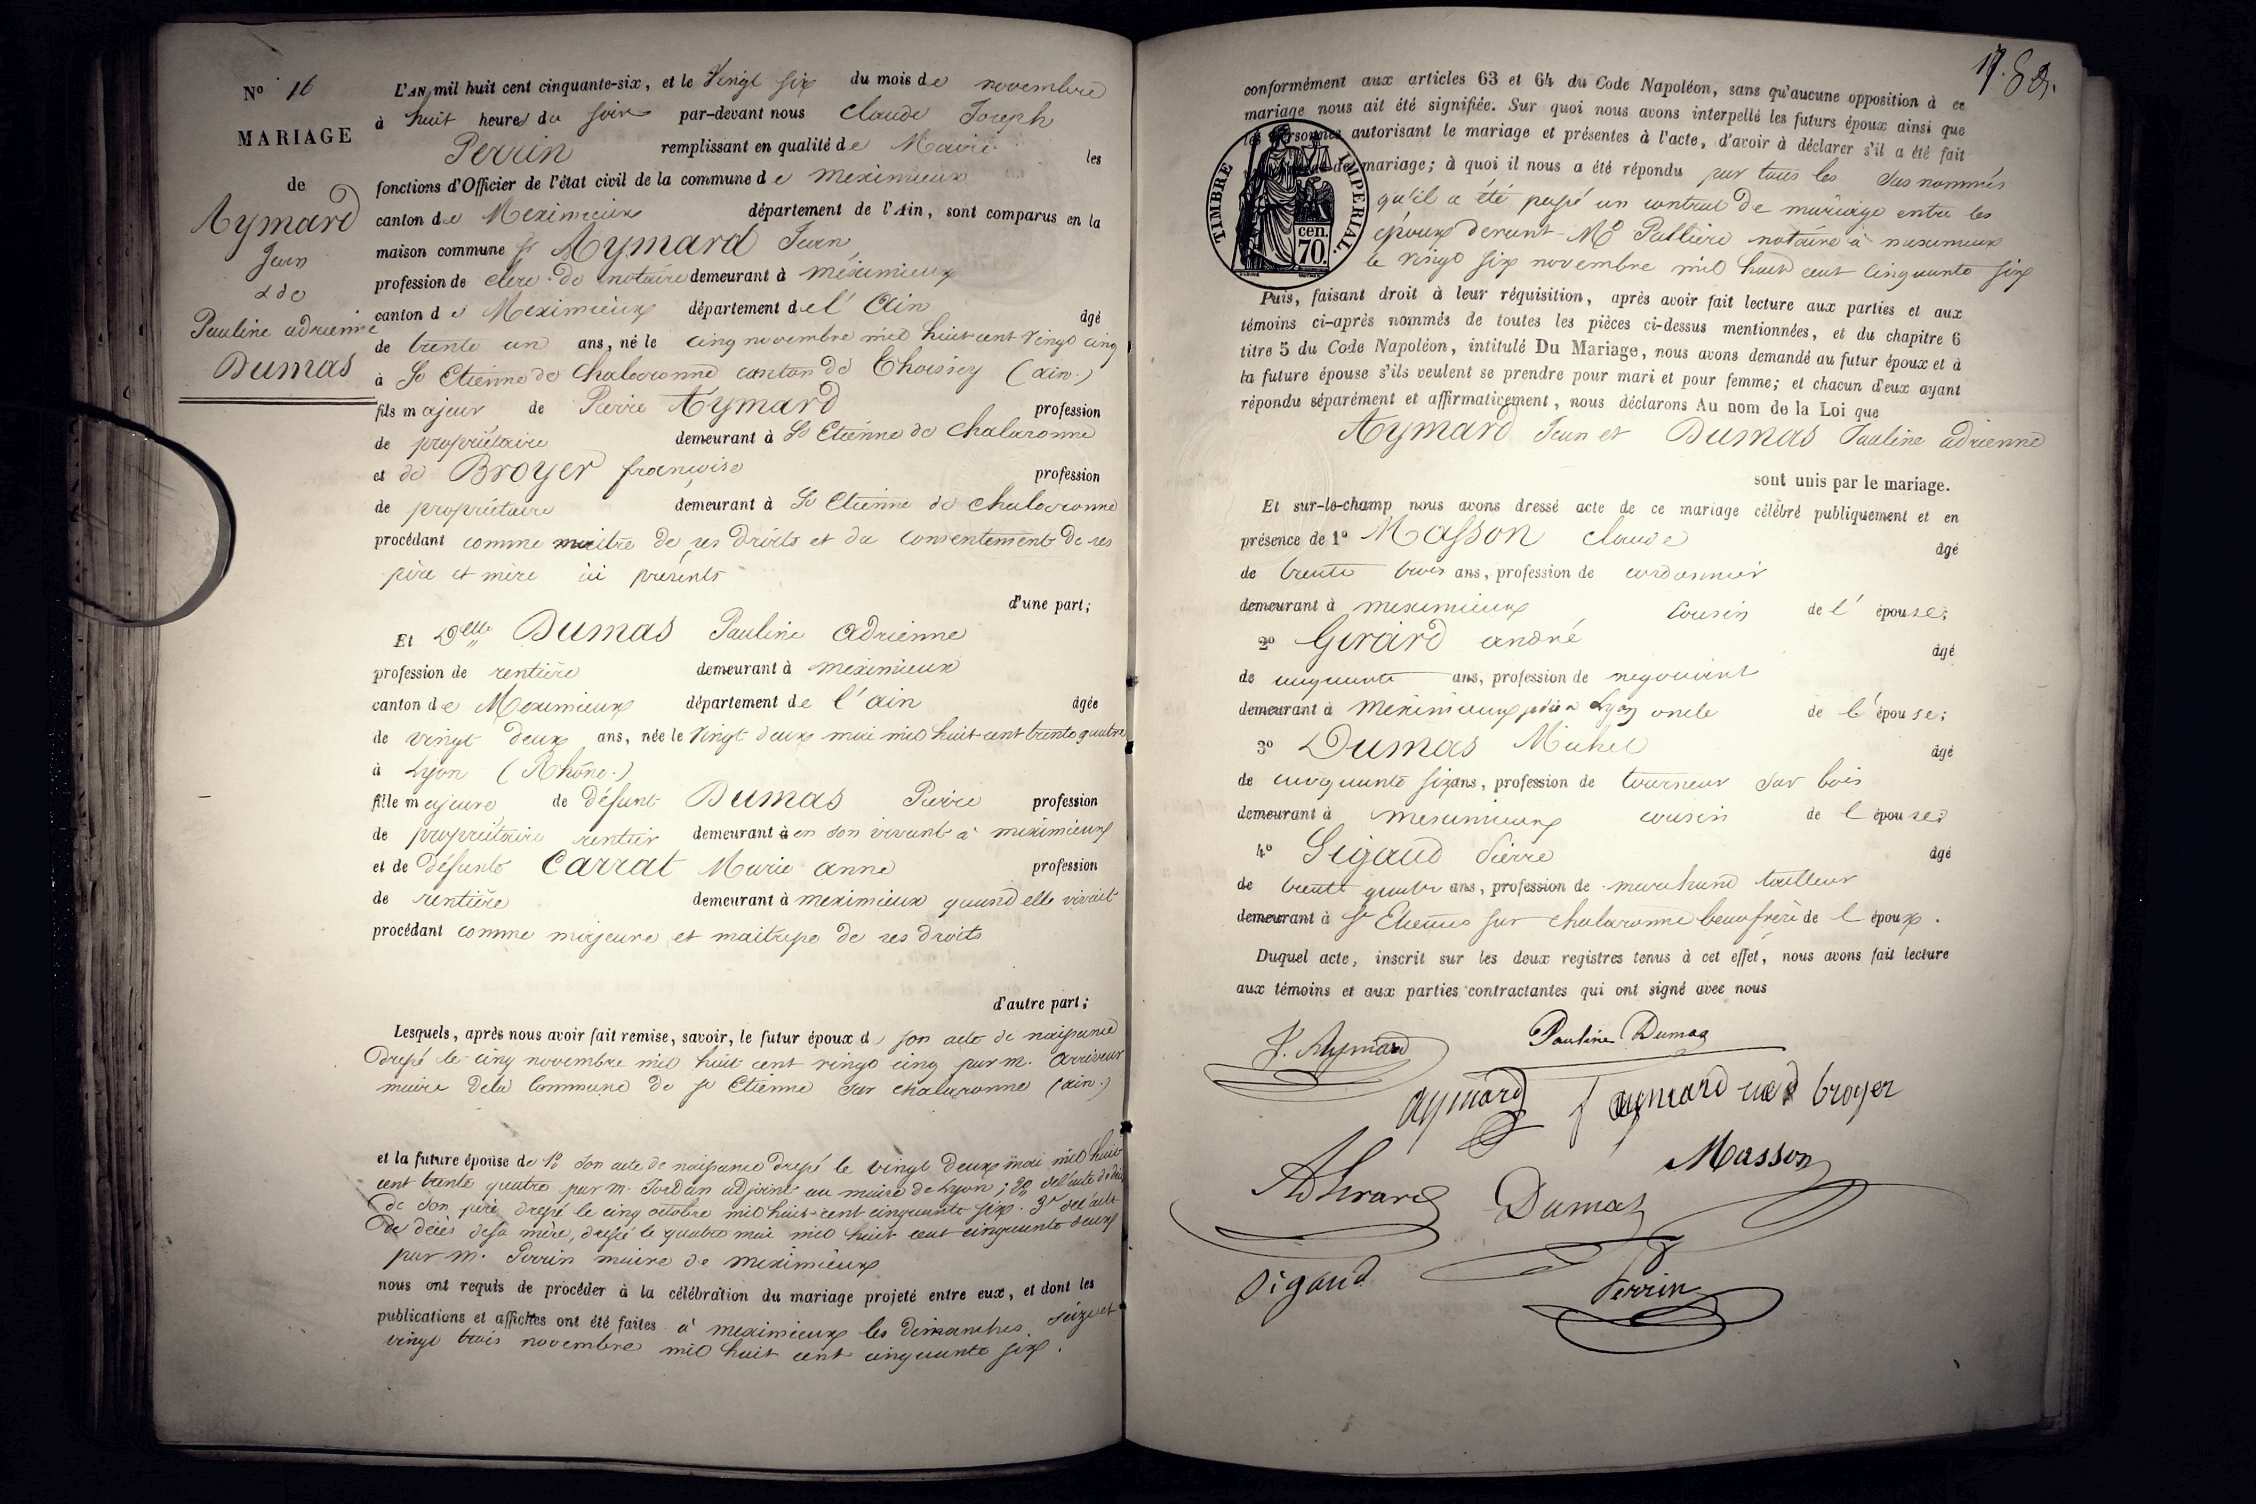 N° 16
MARIAGE
de
Aymard
Jean
& de
Pauline adrienne
Dumas
L'AN mil huit cent cinquante-six, et le vingt six du mois de novembre
à huit heures du soir par-devant nous Claude Joseph
Perrin remplissant en qualité de Maire les
fonctions d'Officier de l'état civil de la commune de meximieux
canton de Meximieux département de l'Ain, sont comparus en la
maison commune sr Aymard Jean
profession de clerc de notaire demeurant à méximieux
canton de Meximieux département de l'Ain âgé
de trente un ans, né le cinq novembre mil huit cent vingt cinq
à St Etienne de Chalaronne canton de Thoissey (ain.)
fils majeur de Pierre Aymard profession
de propriétaire demeurant à St Etienne de chalaronne
et de Broyer françoise profession
de propriétaire demeurant à St Etienne de chalaronne
procédant comme maître de ses droits et du consentement de ses
père et mère ici présents
d'une part;
Et Delle Dumas Pauline Adrienne
profession de rentière demeurant à meximieux
canton de Meximieux département de l'ain âgée
de vingt deux ans, née le vingt deux mai mil huit cent trente quatre
à Lyon (Rhône.)
fille majeure de défunt Dumas Pierre profession
de propriétaire rentier demeurant à en son vivant à meximieux
et de défunte Carrat Marie anne profession
de rentière demeurant à meximieux quand elle vivait
procédant comme majeure et maitresse de ses droits
d'autre part;
Lesquels, après nous avoir fait remise, savoir, le futur époux de son acte de naissance
dressé le cinq novembre mil huit cent vingt cinq par m.
maire de la Commune de St Etienne sur chalaronne (ain.)
et la future épouse de 1° son acte de naissance dressé le vingt deux mai mil huit
cent trente quatre par m. Jordan adjoint au maire de Lyon; 2° de l'acte de décès
de son père dressé le cinq octobre mil huit cent cinquante six. 3° de l'acte
de décès de sa mère, dressé le quatre mai mil huit cent cinquante deux
par m. Perrin maire de meximieux
nous ont requis de procéder à la célébration du mariage projeté entre eux, et dont les
publications et affiches ont été faites à meximieux les dimanches seize et
vingt trois novembre mil huit cent cinquante six.
conformément aux articles 63 et 64 du Code Napoléon, sans qu'aucune opposition à ce
mariage nous ait été signifiée. Sur quoi nous avons interpellé les futurs époux ainsi que
les personnes autorisant le mariage et présentes à l'acte, d'avoir à déclarer s'il a été fait
de mariage; à quoi il nous a été répondu par tous les sus nommés
qu'il a été passé un contrat de mariage entre les
époux devant Me Pallière notaire à meximieux
le vingt six novembre mil huit cent cinquante six
TIMBRE IMPERIAL.
cen.
70.
Puis, faisant droit à leur réquisition, après avoir fait lecture aux parties et aux
témoins ci-après nommés de toutes les pièces ci-dessus mentionnées, et du chapitre 6
titre 5 du Code Napoléon, intitulé Du Mariage, nous avons demandé au futur époux et à
la future épouse s'ils veulent se prendre pour mari et pour femme; et chacun d'eux ayant
répondu séparément et affirmativement, nous déclarons Au nom de la Loi que
Aymard Jean et Dumas Pauline adrienne
sont unis par le mariage.
Et sur-le-champ nous avons dressé acte de ce mariage célébré publiquement et en
présence de 1° Masson Claude âgé
de trente trois ans, profession de cordonnier
demeurant à meximieux cousin de l'épouse;
2° Girard andré âgé
de cinquante ans, profession de negociant
demeurant à Meximieux Lyon oncle de l'épouse;
3° Dumas Michel âgé
de cinquante six ans, profession de tourneur sur bois
demeurant à meximieux cousin de l'épouse;
4° Sigaud Pierre âgé
de trente quatre ans, profession de marchand tailleur
demeurant à St Etienne sur chalaronne beaufrère de l'époux.
Duquel acte, inscrit sur les deux registres tenus à cet effet, nous avons fait lecture
aux témoins et aux parties contractantes qui ont signé avec nous
J. Aymard Pauline Dumas
aymard f aymard née broyer
Masson
Ad Girard Dumas
Sigaud Perrin